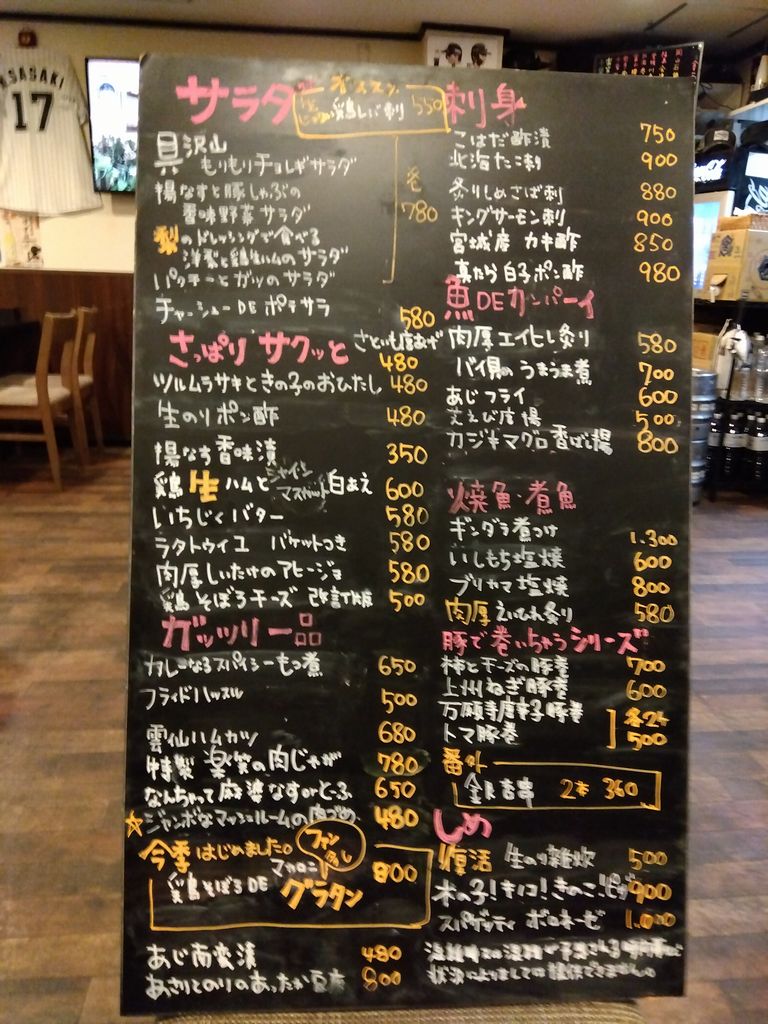 SASAKI
17
サラダ
オススメ
鶏レバ刺 550
具沢山
もりもりチョレギサラダ
揚なすと豚しゃぶの
香味野菜サラダ
梨のドレッシングで食べる
洋梨と鶏生ハムのサラダ
パクチーとガツのサラダ
各
780
チャーシューDEポテサラ
580
さっぱり サクッと
さといも唐あげ
480
ツルムラサキときの子のおひたし 480
生のりポン酢 480
揚なす香味漬 350
鶏生ハムとシャインマスカット白あえ 600
いちじくバター 580
ラタトウイユ バケットつき 580
肉厚しいたけのアヒージョ 580
鶏そぼろチーズ 改訂版 500
ガッツリ一品
カレーなるスパイシーもつ煮 650
フライドハッスル 500
雲仙ハムカツ 680
特製 楽笑の肉じゃが 780
なんちゃって麻婆なすonとーふ 650
ジャンボなマッシュルームの肉づめ 480
今季はじめました。
ファン多し
鶏そぼろDE マカロニグラタン 800
あじ南蛮漬 480
あさりとのりのあったか豆腐 800
刺身
こはだ酢漬 750
北海たこ刺 900
炙りしめさば刺 880
キングサーモン刺 900
宮城産 カキ酢 850
真たら白子ポン酢 980
魚DEカンパーイ
肉厚エイヒレ炙り 580
バイ貝のうまうま煮 700
あじフライ 600
芝えび唐揚 500
カジキマグロ香ばし揚 800
焼魚・煮魚
ギンダラ煮つけ 1.300
いしもち塩焼 600
ブリカマ塩焼 800
肉厚えいひれ炙り 580
豚で巻いちゃうシリーズ
柿とチーズの豚巻 700
上州ねぎ豚巻 600
万願寺唐辛子豚巻
トマ豚巻
各2本
500
番外
銀杏串 2本 360
しめ
復活 生のり雑炊 500
木の子!キノコ!きのこ!ピザ 900
スパゲッティ ボロネーゼ 1.000